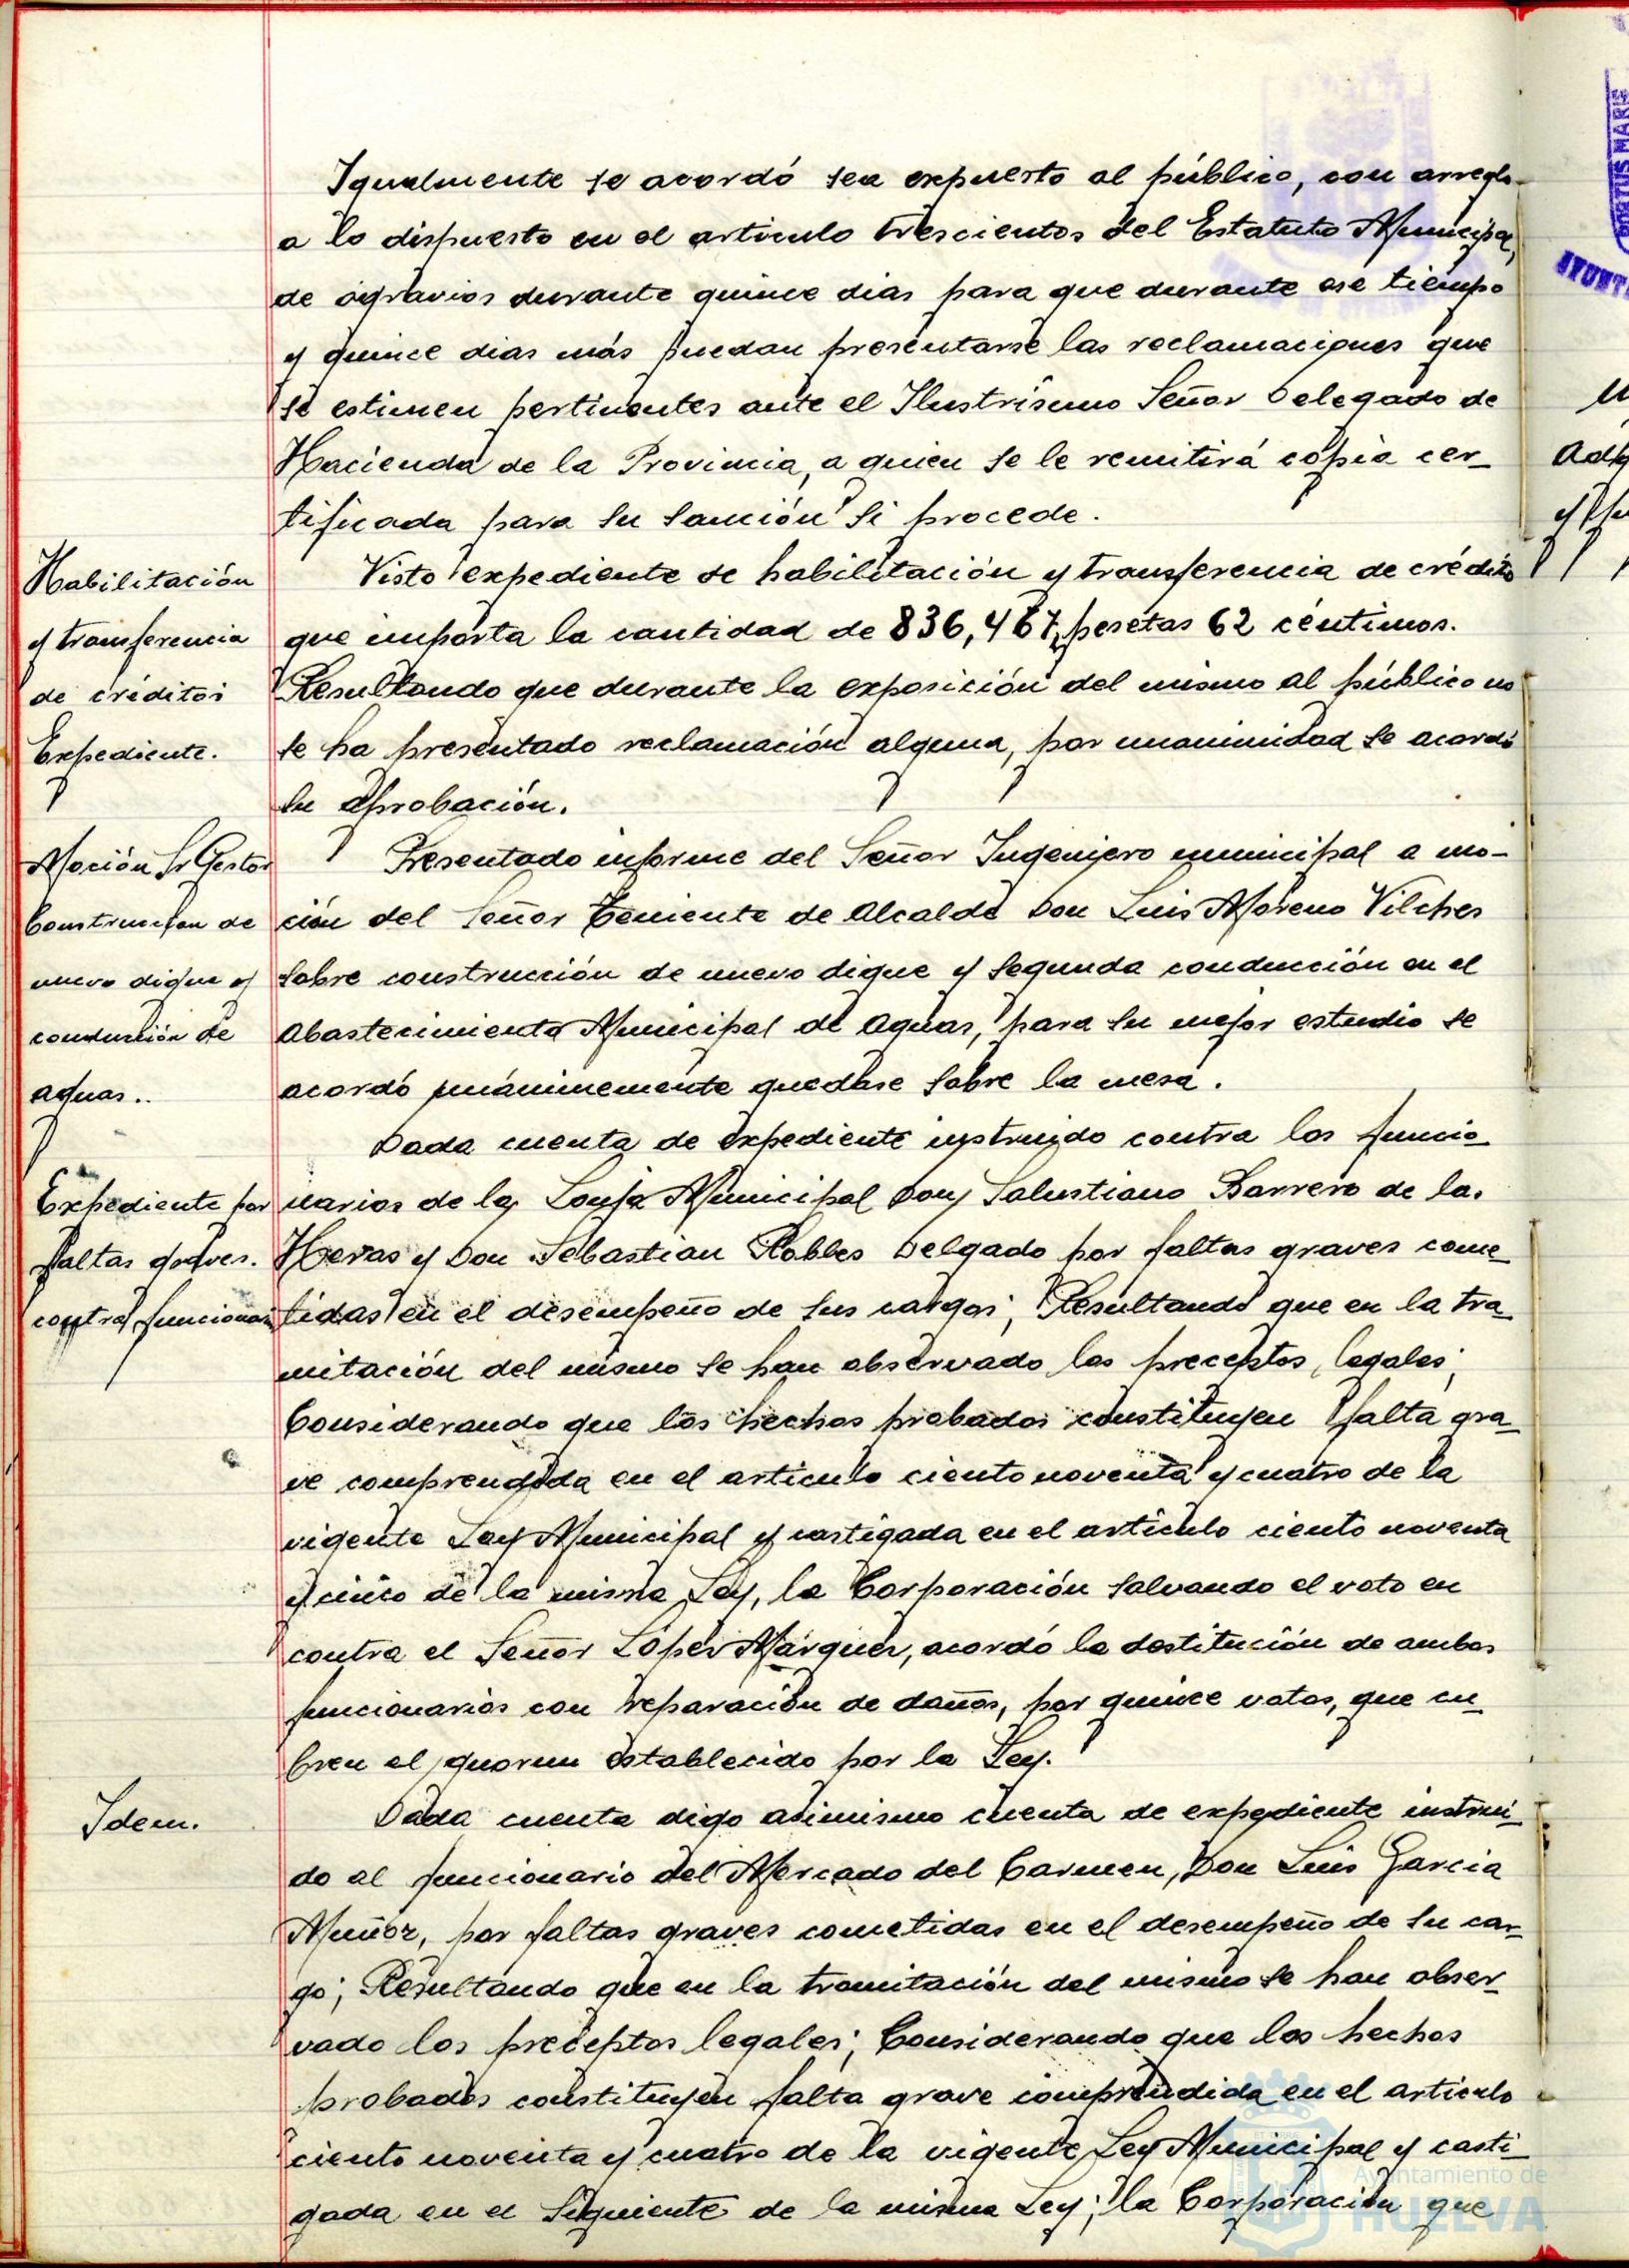 Igualmente se acordó sea expuesto al público, con arreglo
a lo dispuesto en el articulo trescientos del Estatuto Municipal,
de agravios durante quince dias para que durante ese tiempo
y quince dias más puedan presentarse las reclamaciones que
se estimen pertinentes ante el Ilustrísimo Señor Delegado de
Hacienda de la Provincia, a quien se le remitirá copia cer-
tificada para su sanción si procede.
Habilitación
y transferencia
de créditos
Expediente.
Visto expediente de habilitación y transferencia de crédito
que importa la cantidad de 836,467, pesetas 62 céntimos.
Resultando que durante la exposición del mismo al público no
se ha presentado reclamación alguna, por unanimidad se acordó
su aprobación.
Moción Sr Gestor
Construccion de
nuevo dique y
conducción de
aguas..
Presentado informe del Señor Ingeniero municipal a mo-
ción del Señor Teniente de Alcalde Don Luis Moreno Vilches
sobre construcción de nuevo dique y segunda conducción en el
Abastecimiento Municipal de Aguas, para su mejor estudio se
acordó unánimemente quedase sobre la mesa.
Expediente por
faltas graves.
contra funcionarios
Dada cuenta de expediente instruido contra los funcio-
narios de la Lonja Municipal Don Salustiano Barrero de la.
Heras y Don Sebastian Robles Delgado por faltas graves come-
tidas en el desempeño de sus cargos; Resultando que en la tra-
mitación del mismo se han observado los preceptos legales;
Considerando que los hechos probados constituyen falta gra-
ve comprendida en el articulo ciento noventa y cuatro de la
vigente Ley Municipal y castigada en el artículo ciento noventa
y cinco de la misma Ley, la Corporación salvando el voto en
contra el Señor López Márquez, acordó la destitución de ambos
funcionarios con reparación de daños, por quince votos, que cu-
bren el quorum establecido por la Ley.
Idem.
Dada cuenta digo asimismo cuenta de expediente instrui-
do al funcionario del Mercado del Carmen, Don Luis Garcia
Muñoz, por faltas graves cometidas en el desempeño de su car-
go; Resultando que en la tramitación del mismo se han obser-
vado los preceptos legales; Considerando que los hechos
probados constituyen falta grave comprendida en el articulo
ciento noventa y cuatro de la vigente Ley Municipal y casti-
gada en el siguiente de la misma Ley; la Corporación que
Ayuntamiento de
HUELVA